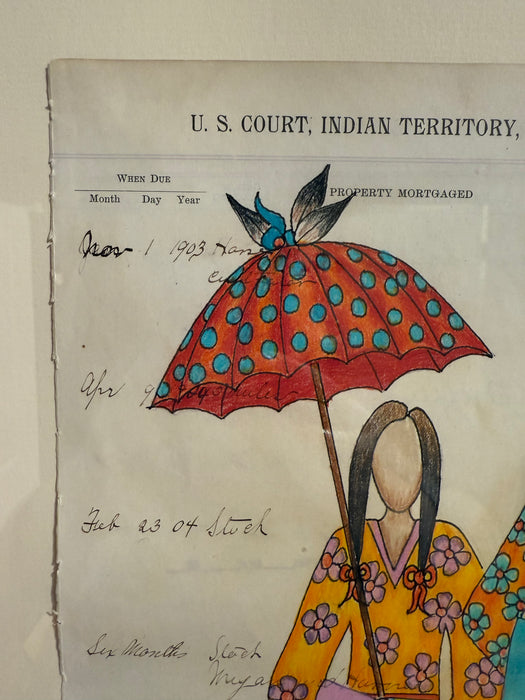 U. S. COURT, INDIAN TERRITORY,
WHEN DUE
Month Day Year
PROPERTY MORTGAGED
Nov 1 1903
Apr 9
Feb 23 04 Stock
Six Months Stock